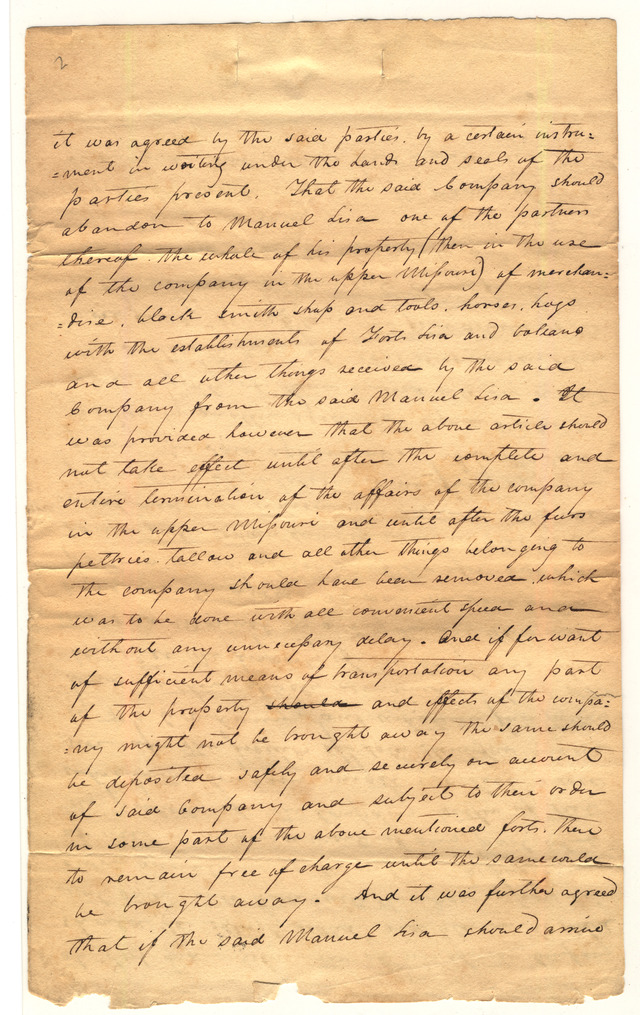 2
it was agreed by the said parties, by a certain instru=
=ment in writing under the Lands and seals of the
parties present. That the said Company should
abandon to Manuel Lisa one of the partners
thereof the whole of his property (then in the use
of the company in the upper Missouri) of merchan=
=dise, black smith shop and tools, horses, hogs
with the establishments of Forts Lisa and
and all other things received by the said
Company from the said Manuel Lisa. It
was provided however that the above article should
not take effect until after the complete and
entire termination of the affairs of the company
in the upper Missouri and until after the furs
peltries tallow and all other things belonging to
the company should have been removed, which
was to be done with all convenient speed and
without any unnecessary delay. And if for want
of sufficient means of transportation any part
of the property should and effects of the compa=
=ny might not be brought away the same should
be deposited safely and securely on account
of said Company and subject to their order
in some part of the above mentioned forts. there
to remain free of charge until the same could
be brought away. And it was further agreed
that if the said Manuel Lisa should arrive